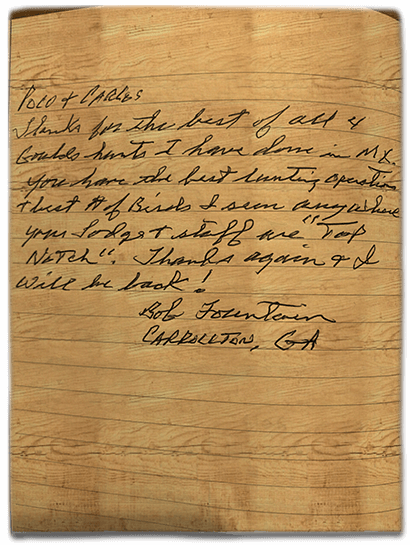 Polo & Carlos
Thanks for the best of all 4
Goulds hunts I have done in MX.
You have the best hunting operation
& best # of Birds I seen anywhere
your lodge & staff are "Top
Notch". Thanks again & I
will be back!
Bob Fountain
CARROLLTON, GA